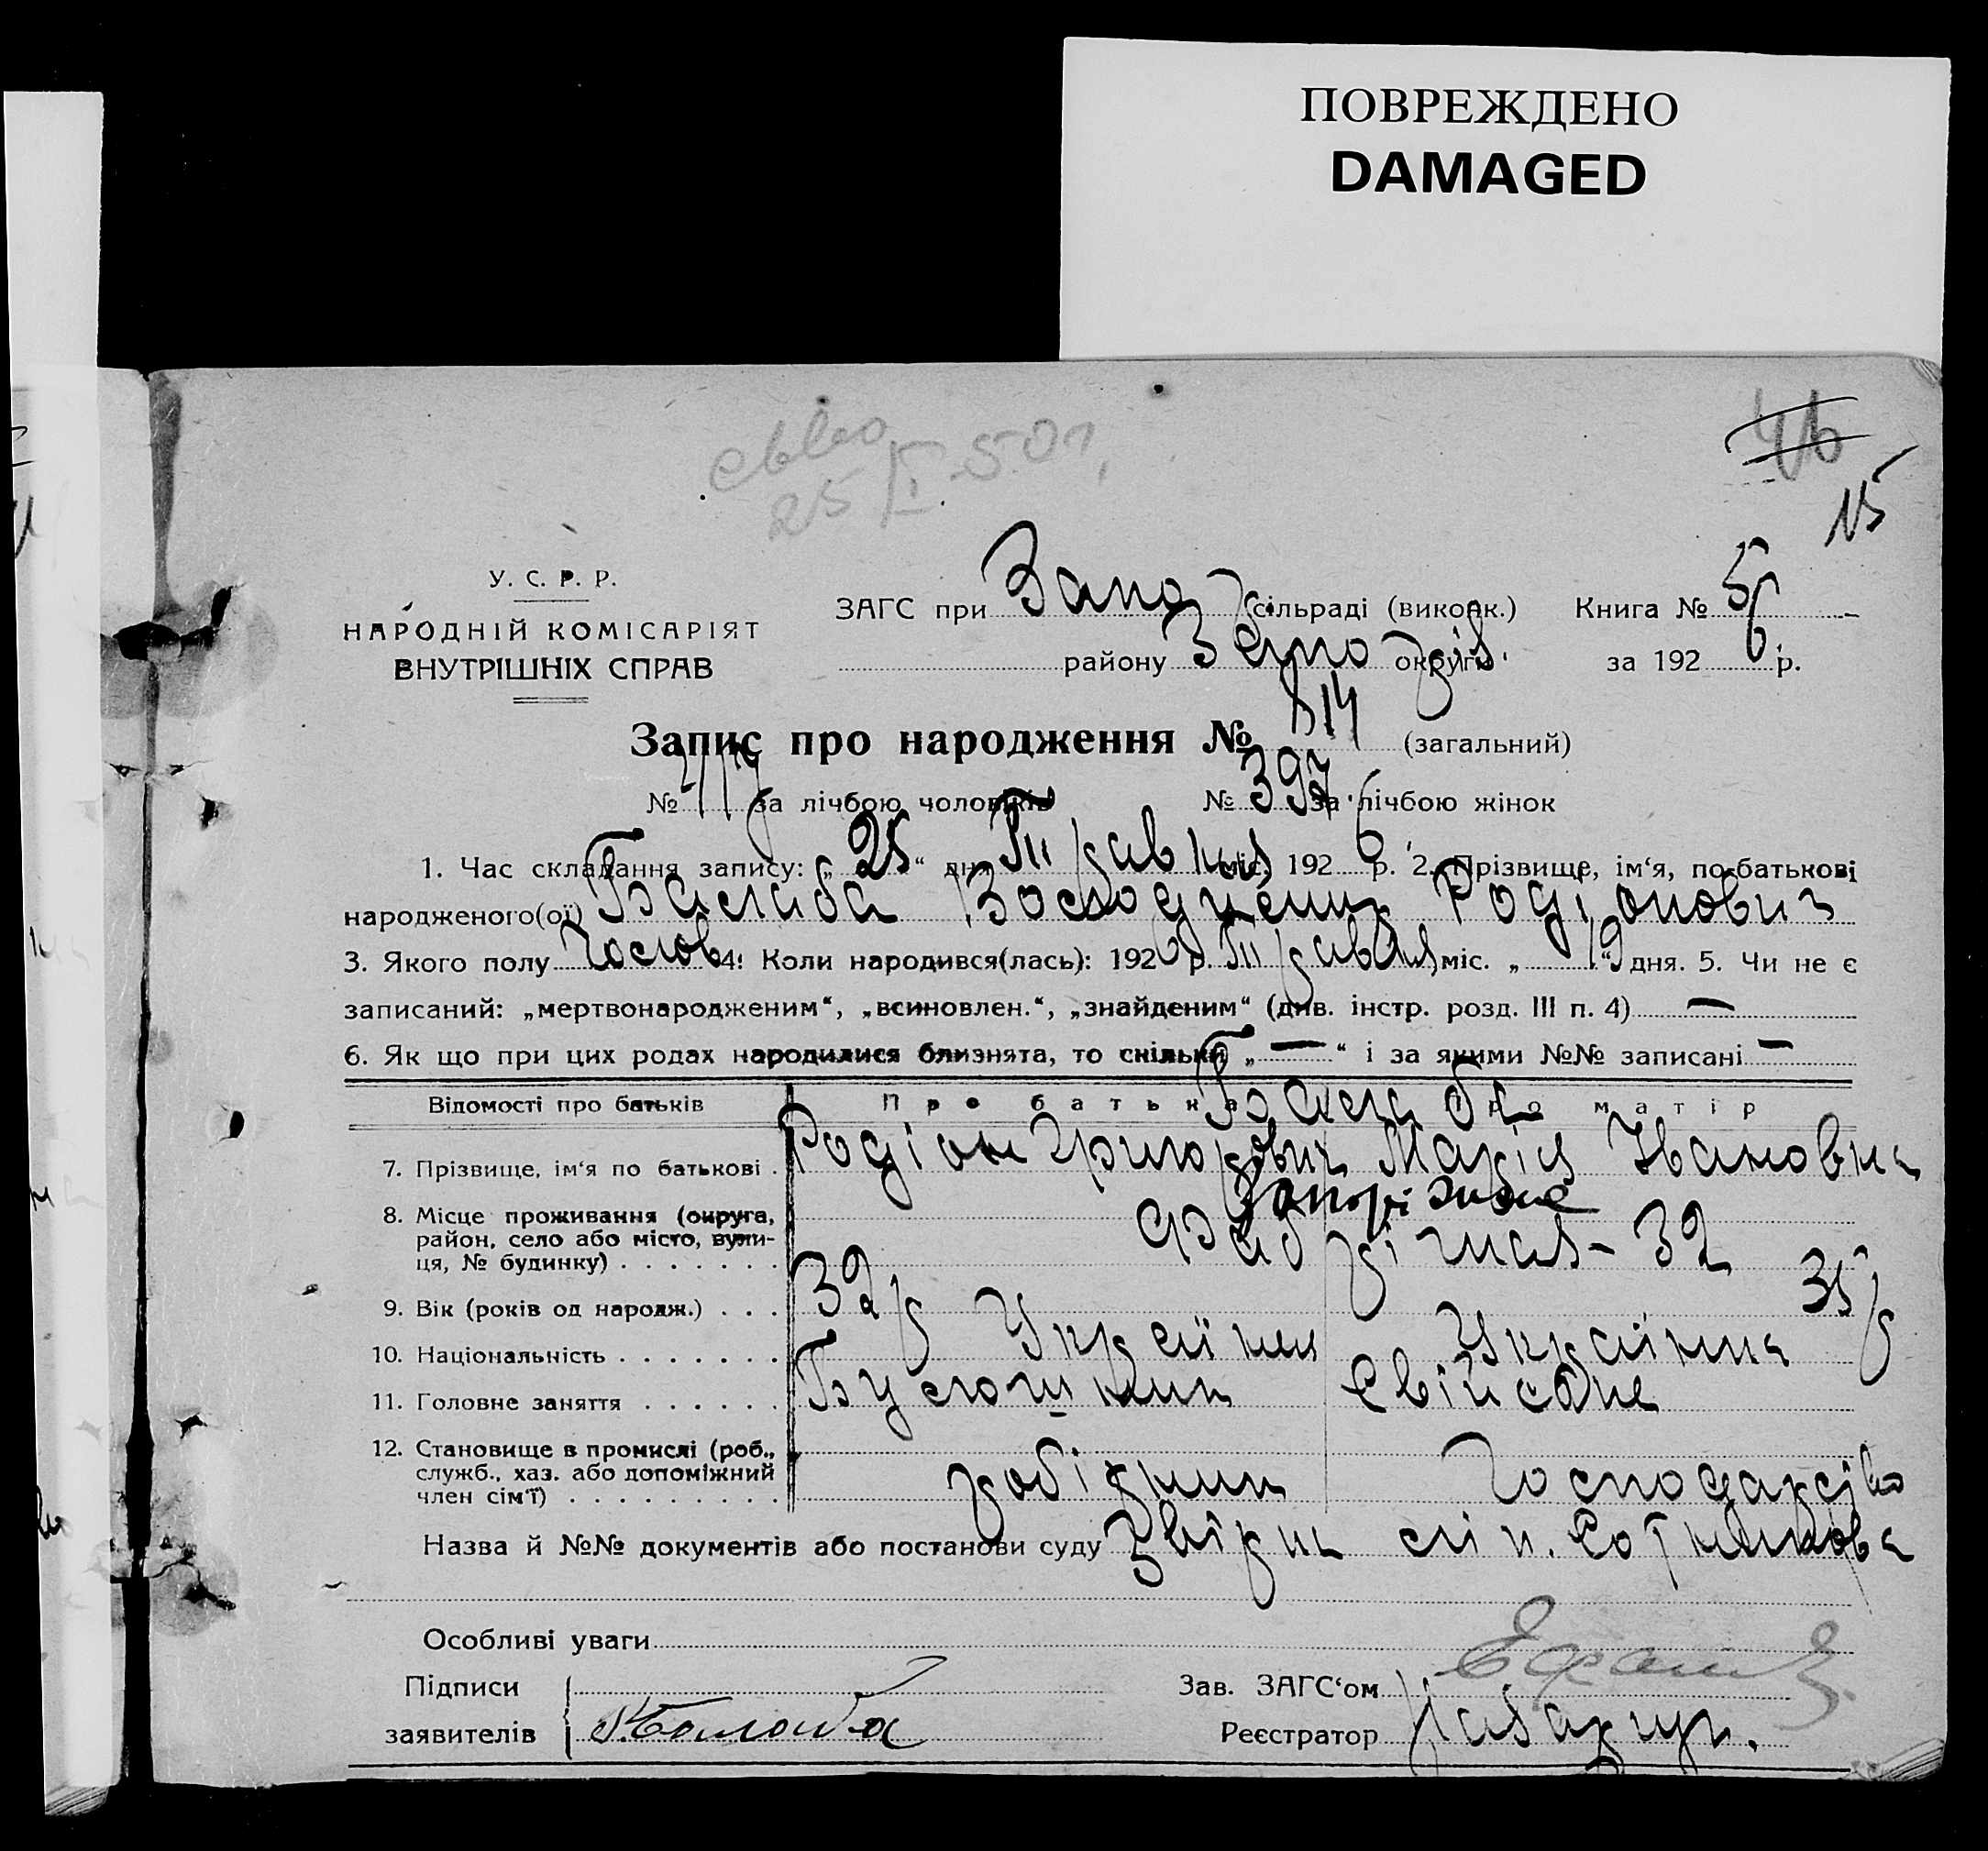 ПОВРЕЖДЕНО
DAMAGED
46
15
25 50
У. С. Р. Р.
НАРОДНІЙ КОМІСАРІЯТ
ВНУТРІШНІХ СПРАВ
ЗАГС при Запор сільраді (виконк.) Книга № 5
району округи за 1926 р.
Запис про народження № 814 (загальний)
№ 417 за лічбою чоловіків № 397 за лічбою жінок
1. Час складання запису: „25“ дня Травня міс. 1926 р. 2. Прізвище, ім'я, по-батькові
народженого(ої) Балаба Родіонович
3. Якого полу Чолов 4. Коли народився(лась): 1926 р. Травня міс. „19“ дня. 5. Чи не є
записаний: „мертвонародженим“, „всиновлен.“, „знайденим“ (див. інстр. розд. III п. 4) —
6. Як що при цих родах народилися близнята, то скільки „—“ і за якими №№ записані —
Відомості про батьків Про батька Про матір
Балаба
7. Прізвище, ім‘я по батькові . Родіон Григорович Марія Івановна
8. Місце проживання (округа, район, село або місто, вулиця, № будинку) . . . . . . . Запоріжжє
Фабрічная - 32
9. Вік (років од народж.) . . . 32 р 35 р
10. Національність . . . . . . . Українец Українка
11. Головне заняття . . . . . .
12. Становище в промислі (роб., служб., хаз. або допоміжний член сім‘ї) . . . . . . . . . робітник Господарство
Назва й №№ документів або постанови суду
Особливі уваги
Підписи
заявителів Балаба
Зав. ЗАГС‘ом
Реєстратор